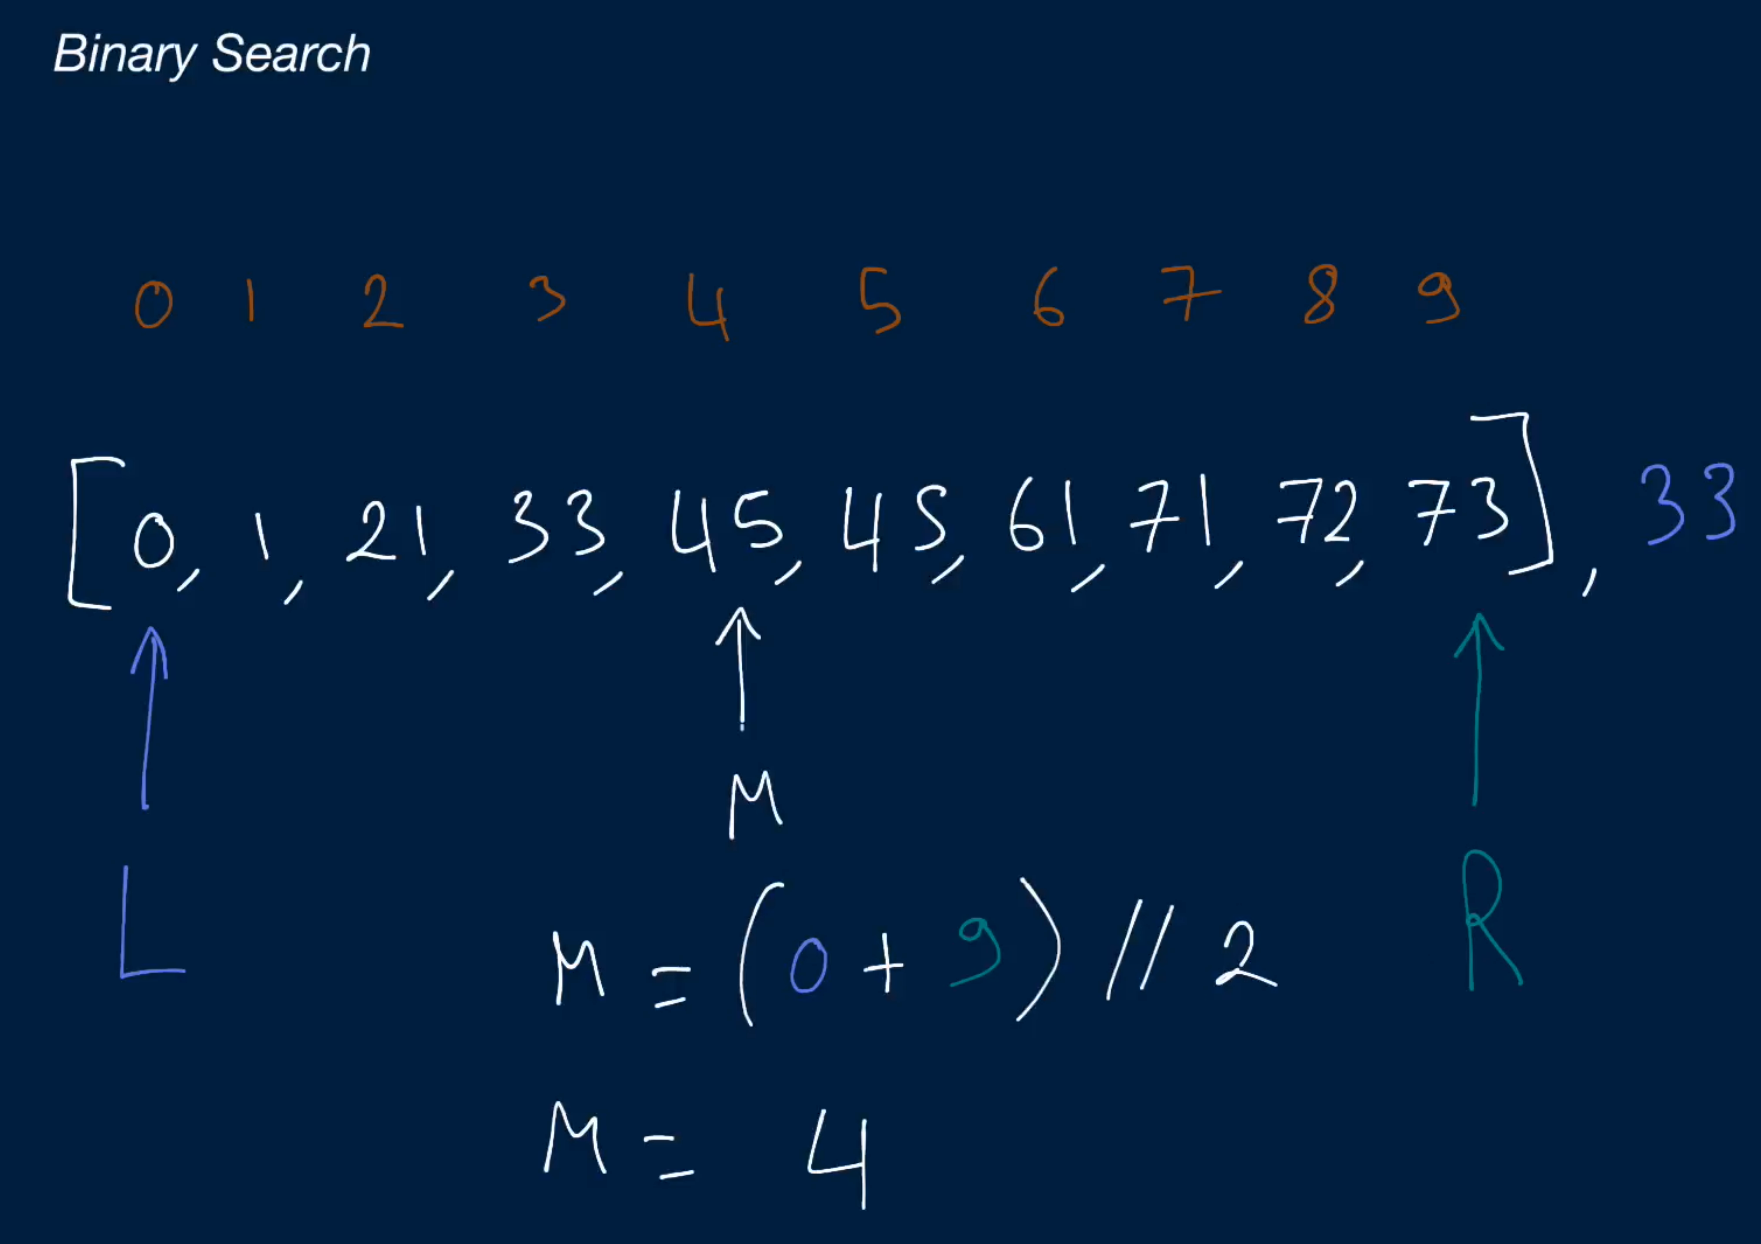 Binary Search
0 1 2 3 4 5 6 7 8 9
[0, 1, 21, 33, 45, 45, 61, 71, 72, 73], 33
M
L R
M = (0 + 9) // 2
M = 4